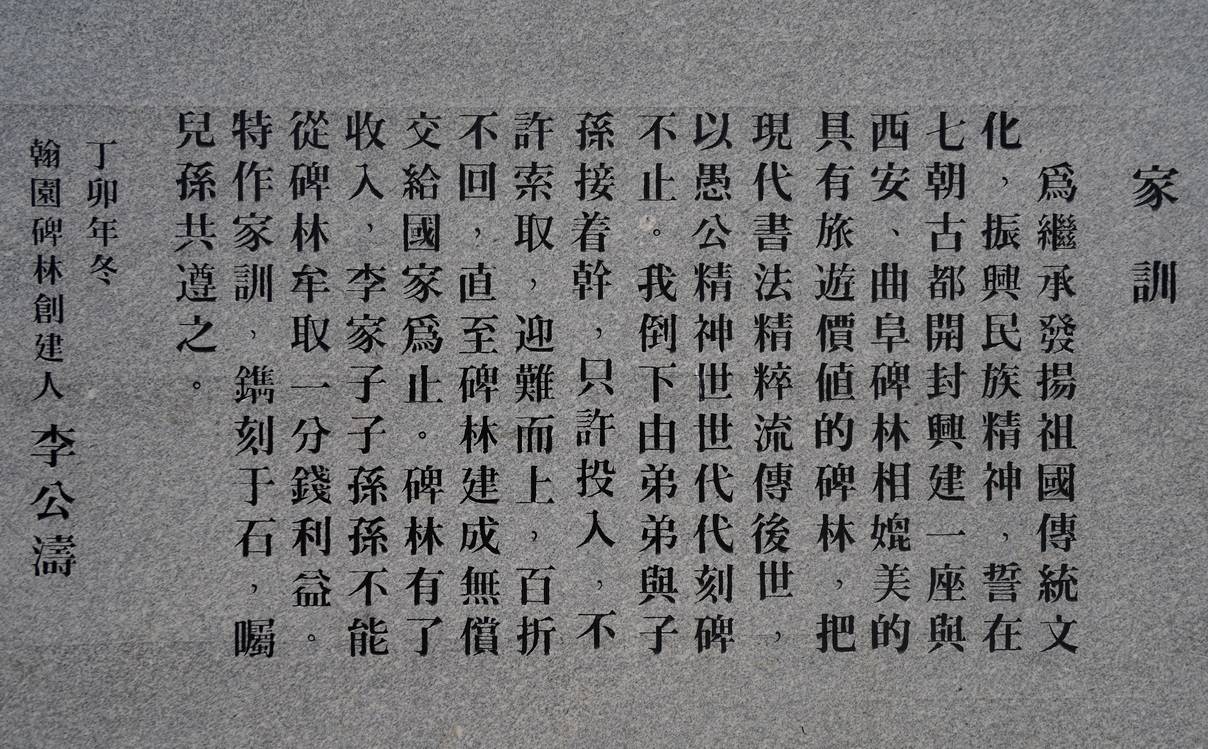 家訓
爲繼承發揚祖國傳統文
化，振興民族精神，誓在
七朝古都開封興建一座與
西安、曲阜碑林相媲美的
具有旅遊價值的碑林，把
現代書法精粹流傳後世，
以愚公精神世世代代刻碑
不止。我倒下由弟弟與子
孫接着幹，只許投入，不
許索取，迎難而上，百折
不回，直至碑林建成無償
交給國家爲止。碑林有了
收入，李家子子孫孫不能
從碑林牟取一分錢利益。
特作家訓，鐫刻于石，囑
兒孫共遵之。
丁卯年冬
翰園碑林創建人李公濤